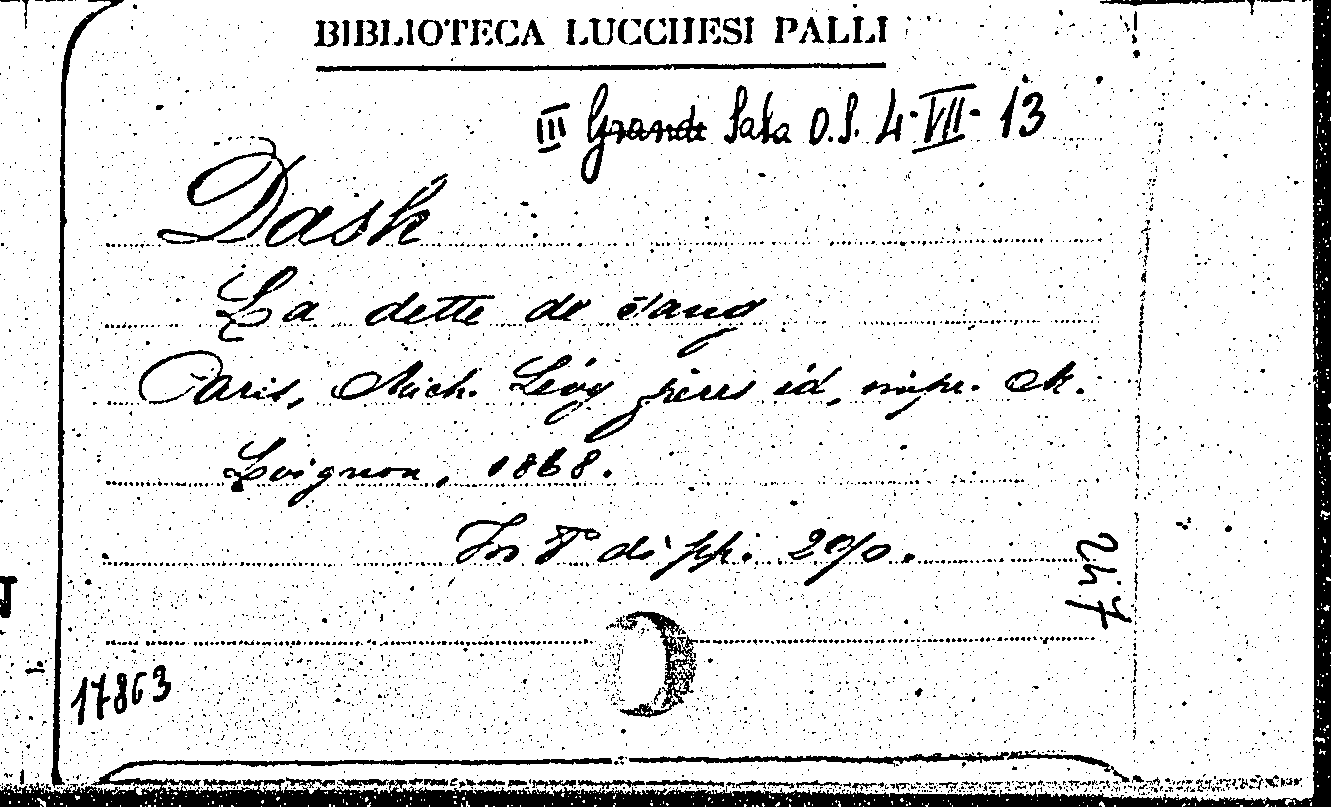 BIBLIOTECA LUCCHESI PALLI
III Grande Sala O.S. 4-VII-13
Dask
La dette de sang
Paris, Mich. Lévy frères éd, impr. M.
Loignon, 1868.
In 8° di pp. 290.
17863